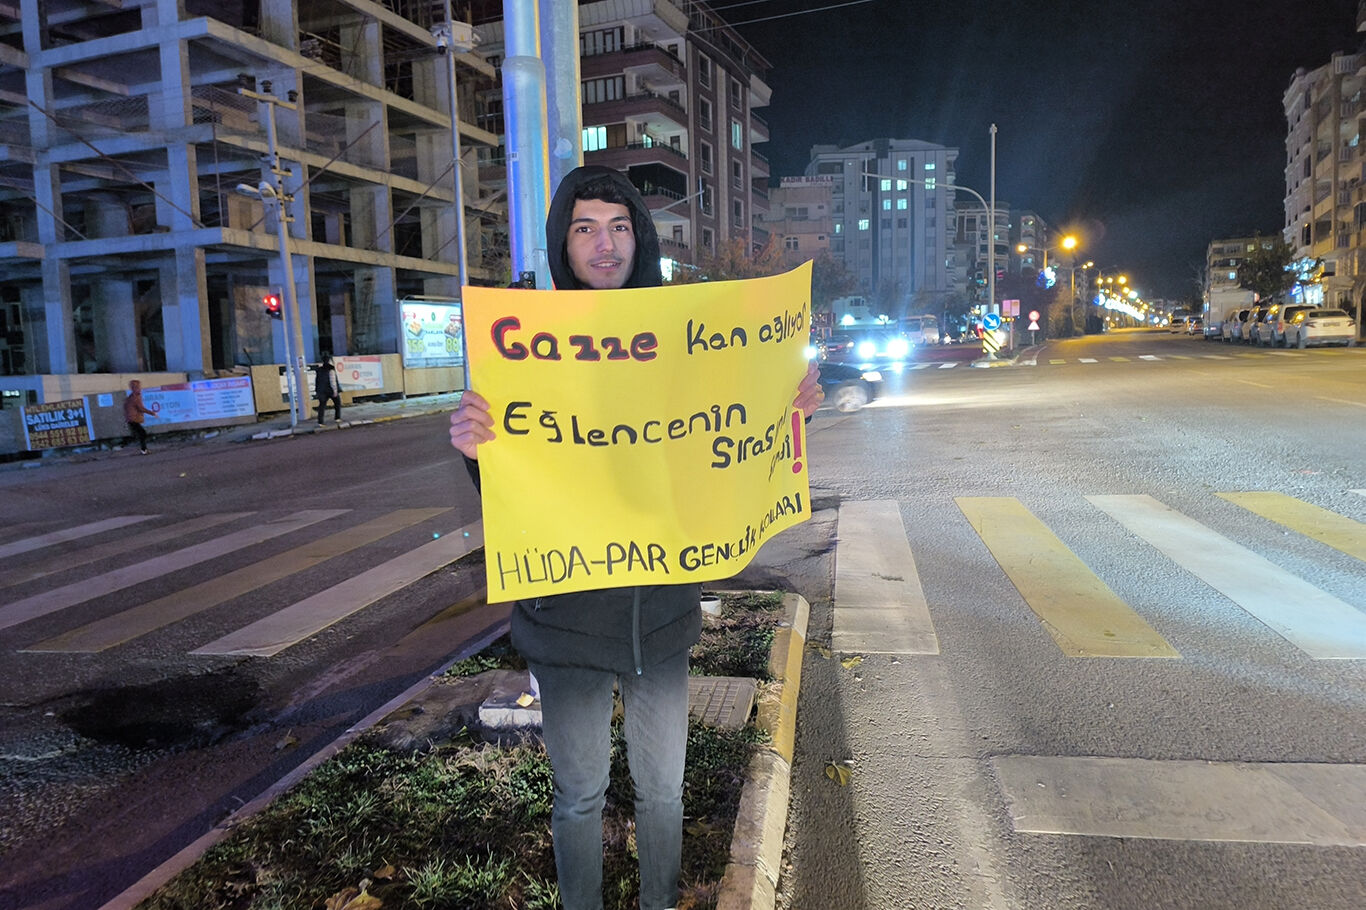 Gazze kan ağlıyor
Eğlencenin
Sırası
!
HÜDA-PAR GENÇLİK KOLLARI
SATILIK 3+1
LÜKS DAİRELER